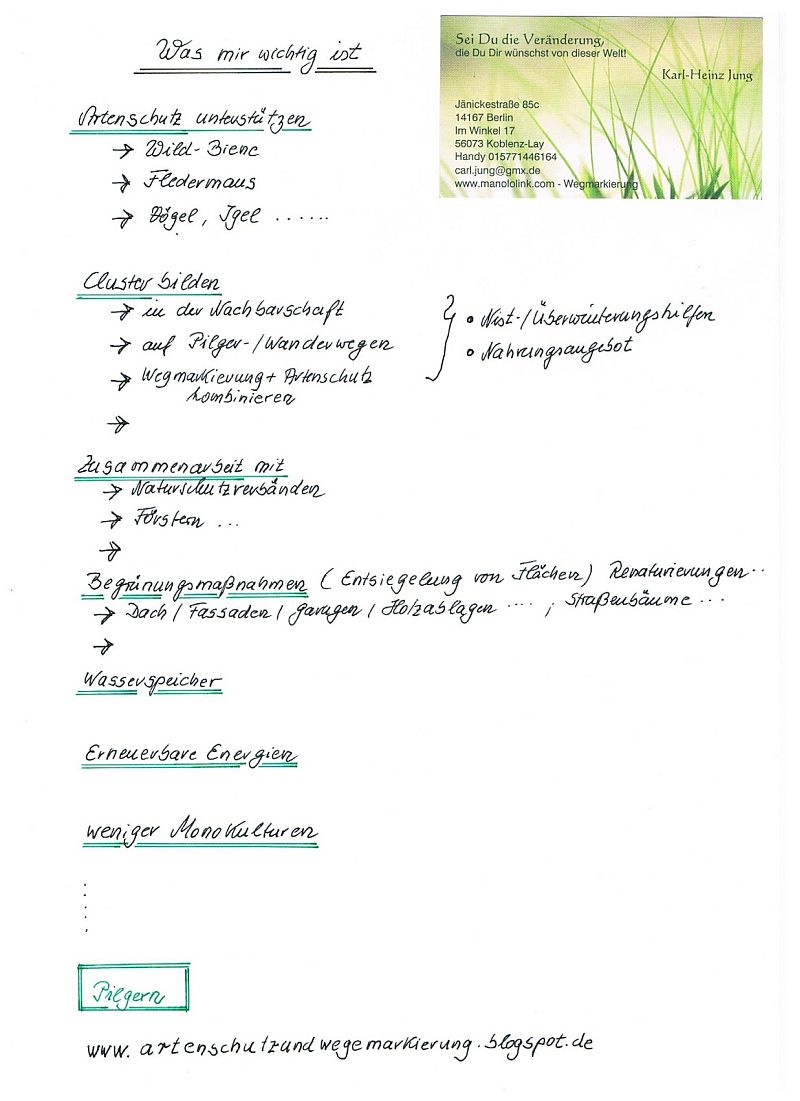 Was mir wichtig ist
Sei Du die Veränderung,
die Du Dir wünschst von dieser Welt!
Karl-Heinz Jung
Jänickestraße 85c
14167 Berlin
Im Winkel 17
56073 Koblenz-Lay
Handy 015771446164
carl.jung@gmx.de
www.manololink.com - Wegmarkierung
Artenschutz unterstützen
→ Wild-Biene
→ Fledermaus
→ Vögel, Igel ......
Cluster bilden
→ in der Nachbarschaft
→ auf Pilger-/Wanderwegen
→ Wegmarkierung + Artenschutz
kombinieren
→
} • Nist-/Überwinterungshilfen
• Nahrungsangebot
Zusammenarbeit mit
→ Naturschutzverbänden
→ Förstern ...
→
Begrünungsmaßnahmen (Entsiegelung von Flächen) Renaturierungen..
→ Dach / Fassaden / Garagen / Holzablagen .... ; Straßenbäume ...
→
Wasserspeicher
Erneuerbare Energien
weniger Monokulturen
Pilgern
www.artenschutzundwegemarkierung.blogspot.de